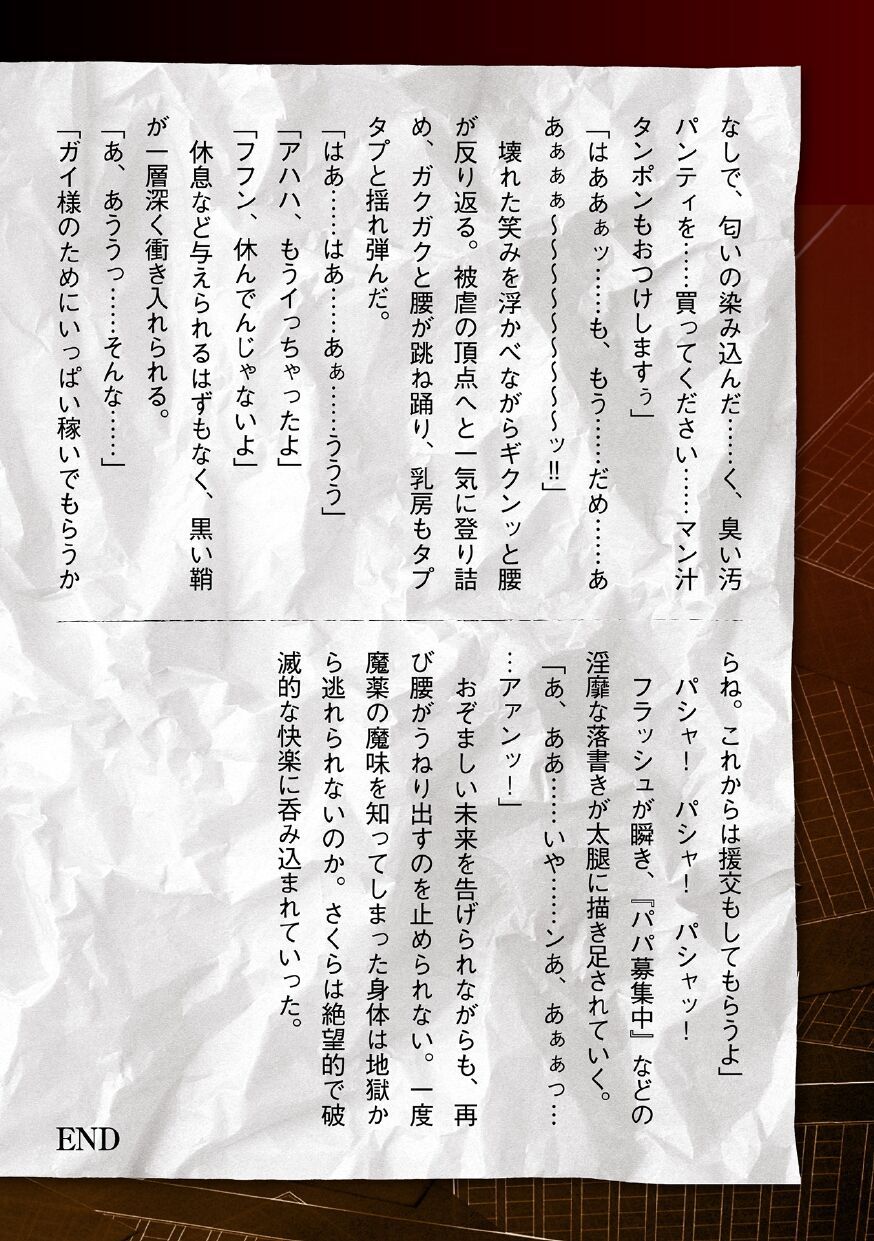 なしで、匂いの染み込んだ……く、臭い汚
パンティを……買ってください……マン汁
タンポンもおつけしますぅ」
「はああぁッ……も、もう……だめ……あ
あぁぁぁ～～～～～～～～～～ッ!!」
壊れた笑みを浮かべながらギクンッと腰
が反り返る。被虐の頂点へと一気に登り詰
め、ガクガクと腰が跳ね踊り、乳房もタプ
タプと揺れ弾んだ。
「はあ……はあ……あぁ……ううう」
「アハハ、もうイっちゃったよ」
「フフン、休んでんじゃないよ」
休息など与えられるはずもなく、黒い鞘
が一層深く衝き入れられる。
「あ、あううっ……そんな……」
「ガイ様のためにいっぱい稼いでもらうか
らね。これからは援交もしてもらうよ」
パシャ！　パシャ！　パシャッ！
フラッシュが瞬き、『パパ募集中』などの
淫靡な落書きが太腿に描き足されていく。
「あ、ああ……いや……ンあ、あぁぁっ…
…アァンッ！」
おぞましい未来を告げられながらも、再
び腰がうねり出すのを止められない。一度
魔薬の魔味を知ってしまった身体は地獄か
ら逃れられないのか。さくらは絶望的で破
滅的な快楽に呑み込まれていった。
END